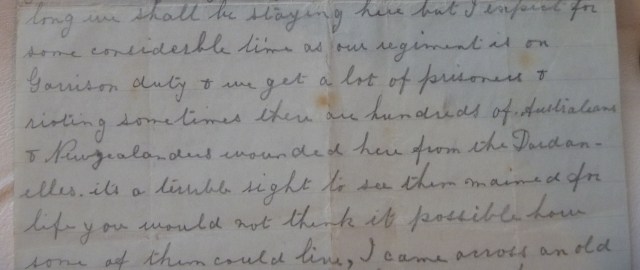 long we shall be staying here but I expect for
some considerble time as our regiment is on
Garrison duty & we get a lot of prisoners &
rioting sometimes there are hundreds of Australeans
& Newzealanders wounded here from the Dardan-
elles. its a terrible sight to see them maimed for
life you would not think it possible how
some of them could live, I came across an old